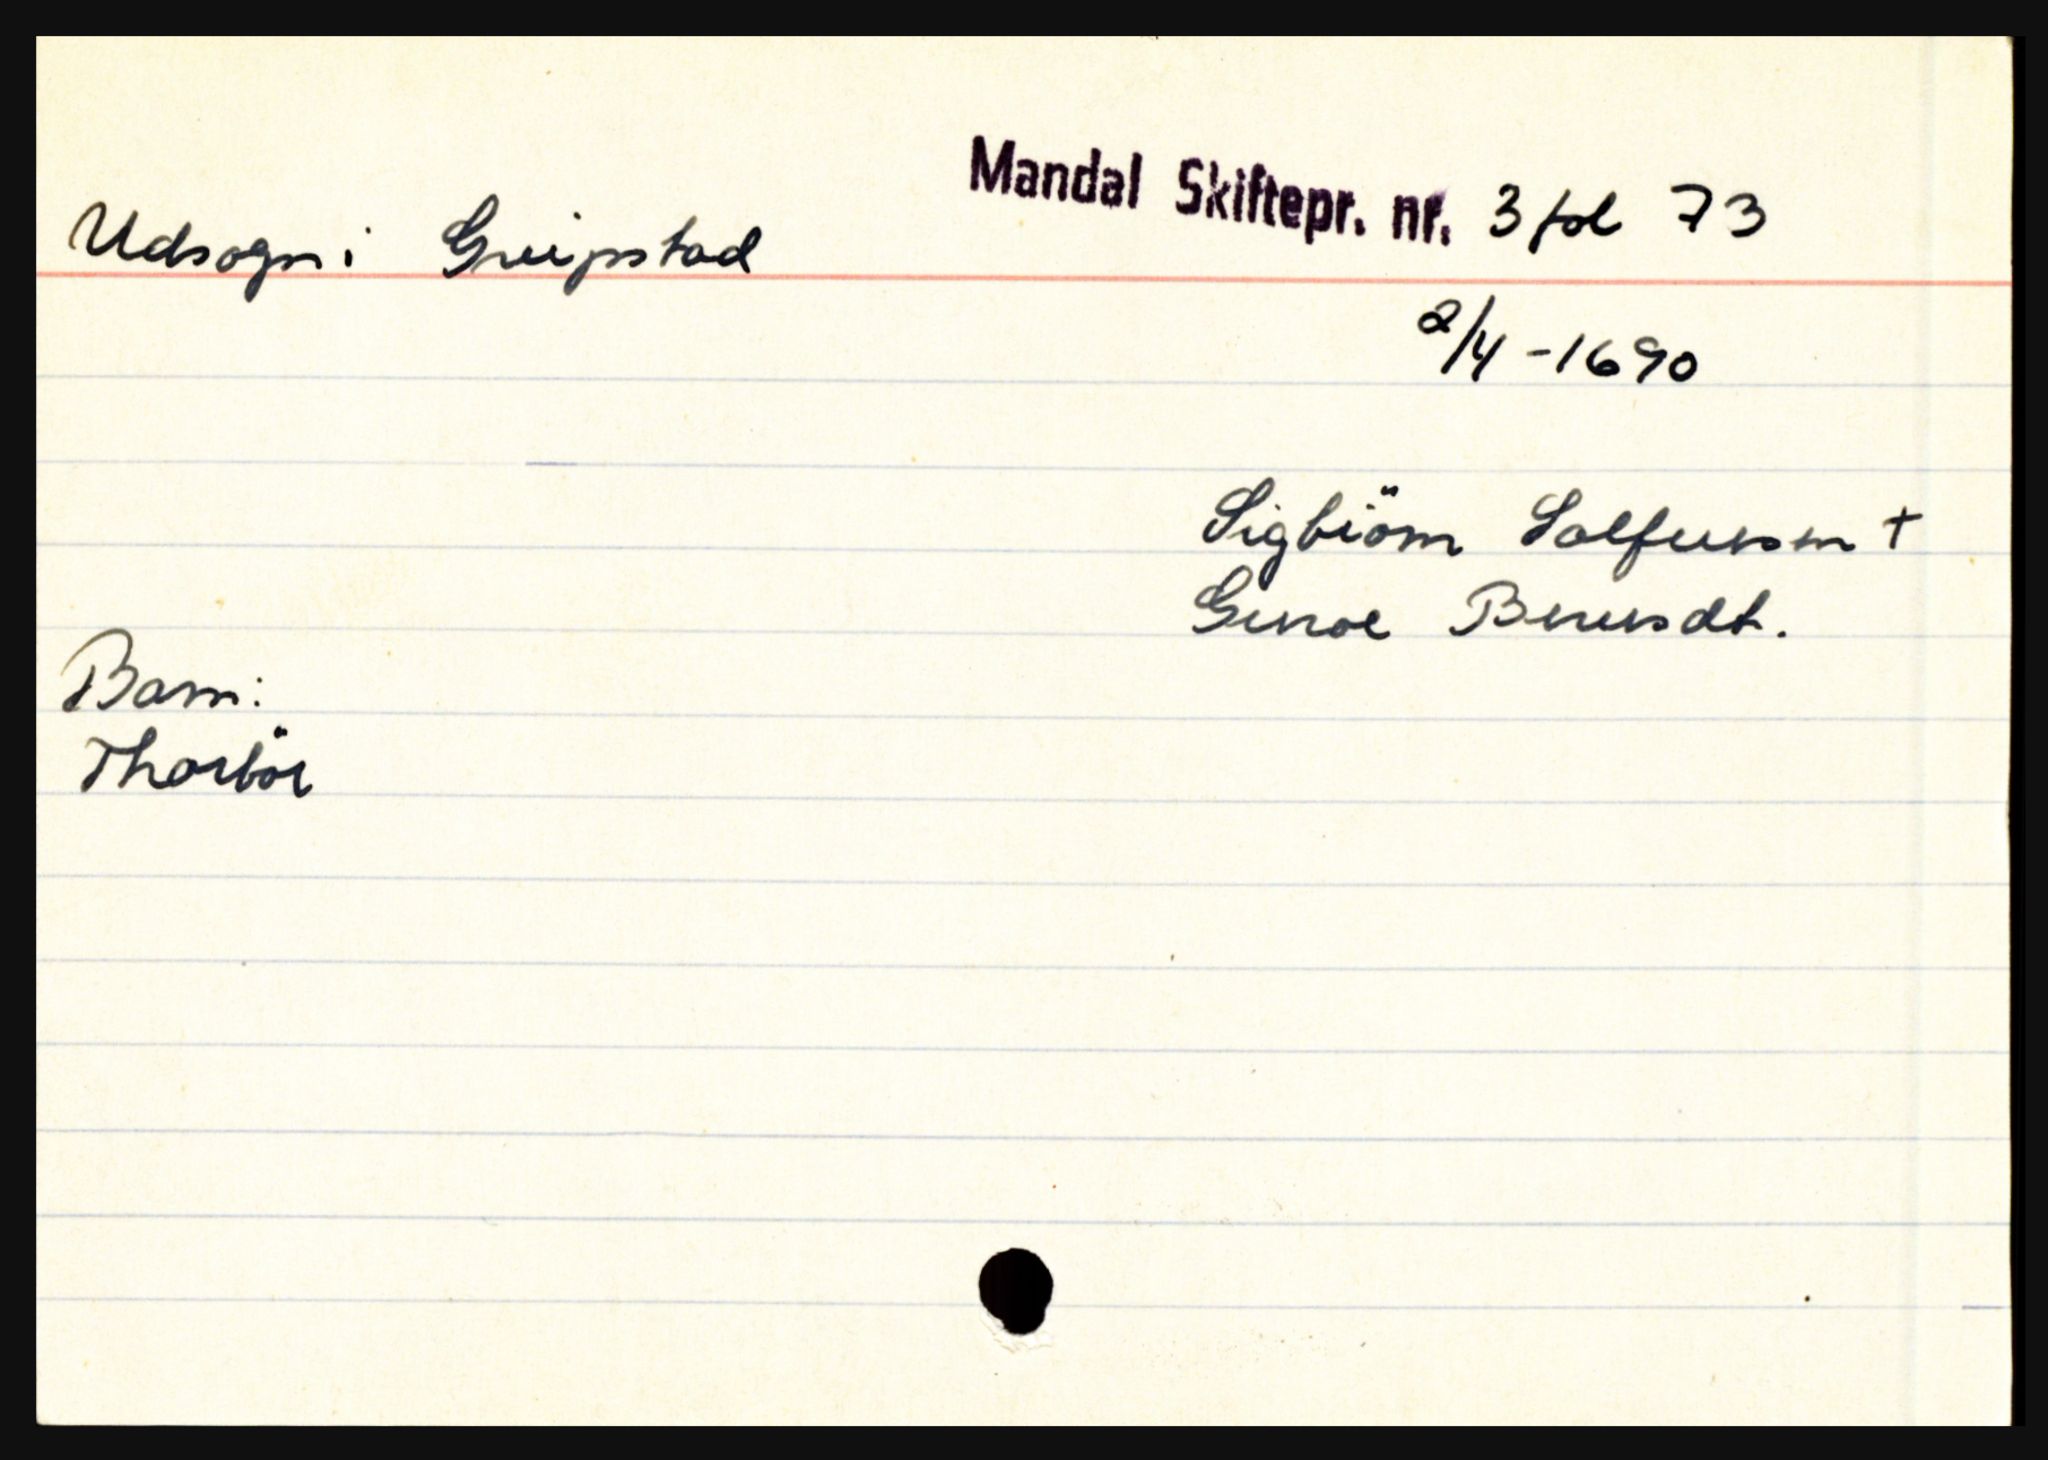 Mandal Skiftepr. nr. 3 fol 73
Udsogn: Greipstad
2/4 - 1690
Sigbiörn Salfuessen +
Guroe Beruesdt.
Barn:
Thorbör